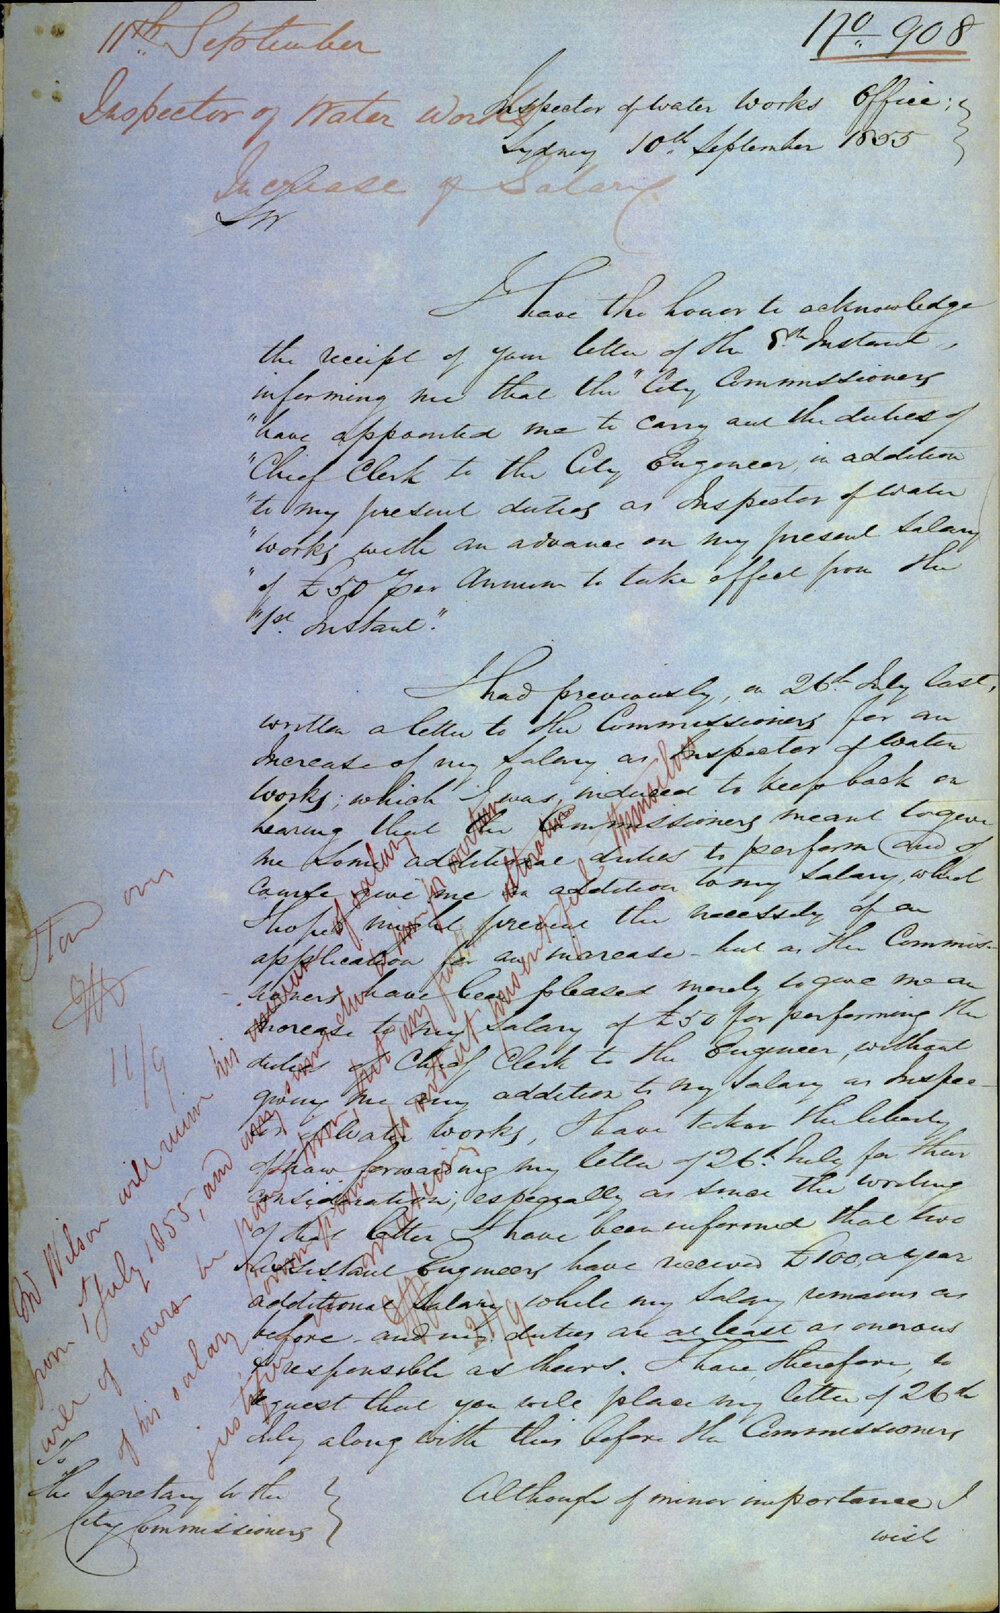 11th September
No 908
Inspector of Water Works
Inspector of Water Works Office;
Sydney 10th September 1855
Increase of Salary
Sir
I have the honor to acknowledge
the receipt of your letter of the 8th Instant,
informing me that the "City Commissioners
"have appointed me to carry out the duties of
"Chief Clerk to the City Engineer, in addition
"to my present duties as Inspector of Water
"Works, with an advance on my present Salary
"of £50 Per Annum to take effect from the
"1st Instant".
I had previously, on 26th July last,
written a letter to the Commissioners for an
Increase of my Salary as Inspector of Water
Works; which I was induced to keep back on
hearing that the Commissioners meant to give
me some additional duties to perform and of
course give me an addition to my Salary, which
I hoped might prevent the necessity of an
application for an increase - but as the Commis-
sioners have been pleased merely to give me an
increase to my Salary of £50 for performing the
duties of Chief Clerk to the Engineer, without
giving me any addition to my Salary as Inspec-
tor of Water Works, I have taken the liberty
of now forwarding my letter of 26th July for their
consideration; especially as since the writing
of that letter I have been informed that two
Assistant Engineers have received £100 a year
additional Salary while my Salary remains as
before - and my duties are at least as onerous
& responsible as theirs. I have, therefore, to
request that you will place my letter of 26th
July along with this before the Commissioners
Although of minor importance I
wish
To
The Secretary to the
City Commissioners
11/9
Mr Wilson will receive his of salary
from 1 July 1855, and any
will of course be
of his salary
justify
21/9